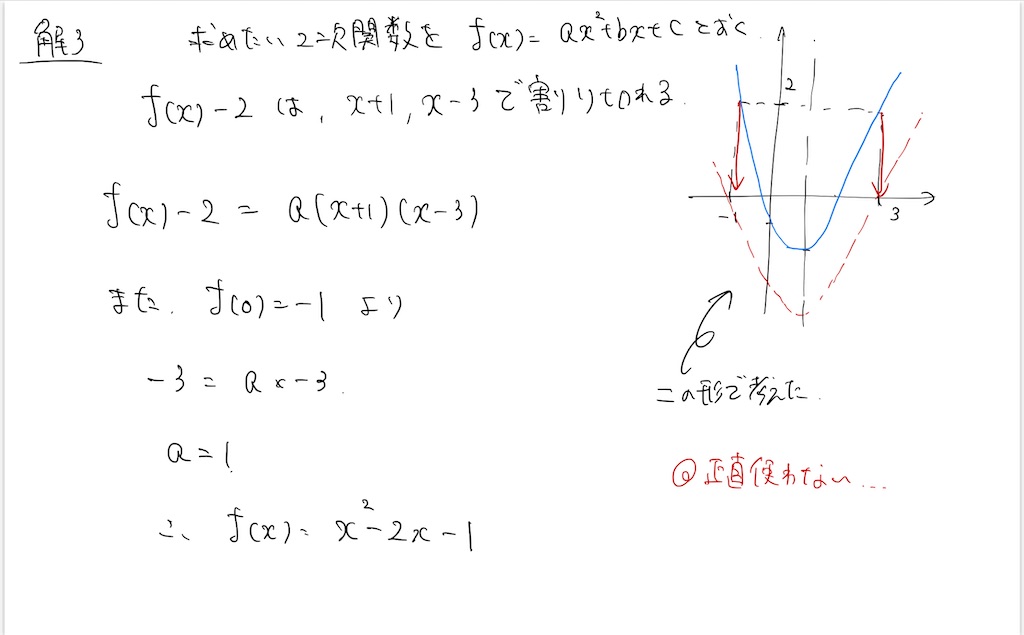 解3
求めたい2次関数を f(x)= ax²+bx+c とおく.
f(x)-2 は, x+1, x-3 で割りきれる.
f(x)-2 = a(x+1)(x-3)
また. f(0)=-1 より
-3 = a×-3.
a=1
∴ f(x)= x²-2x-1
2
-1
3
この形で考えた.
正直使わない...